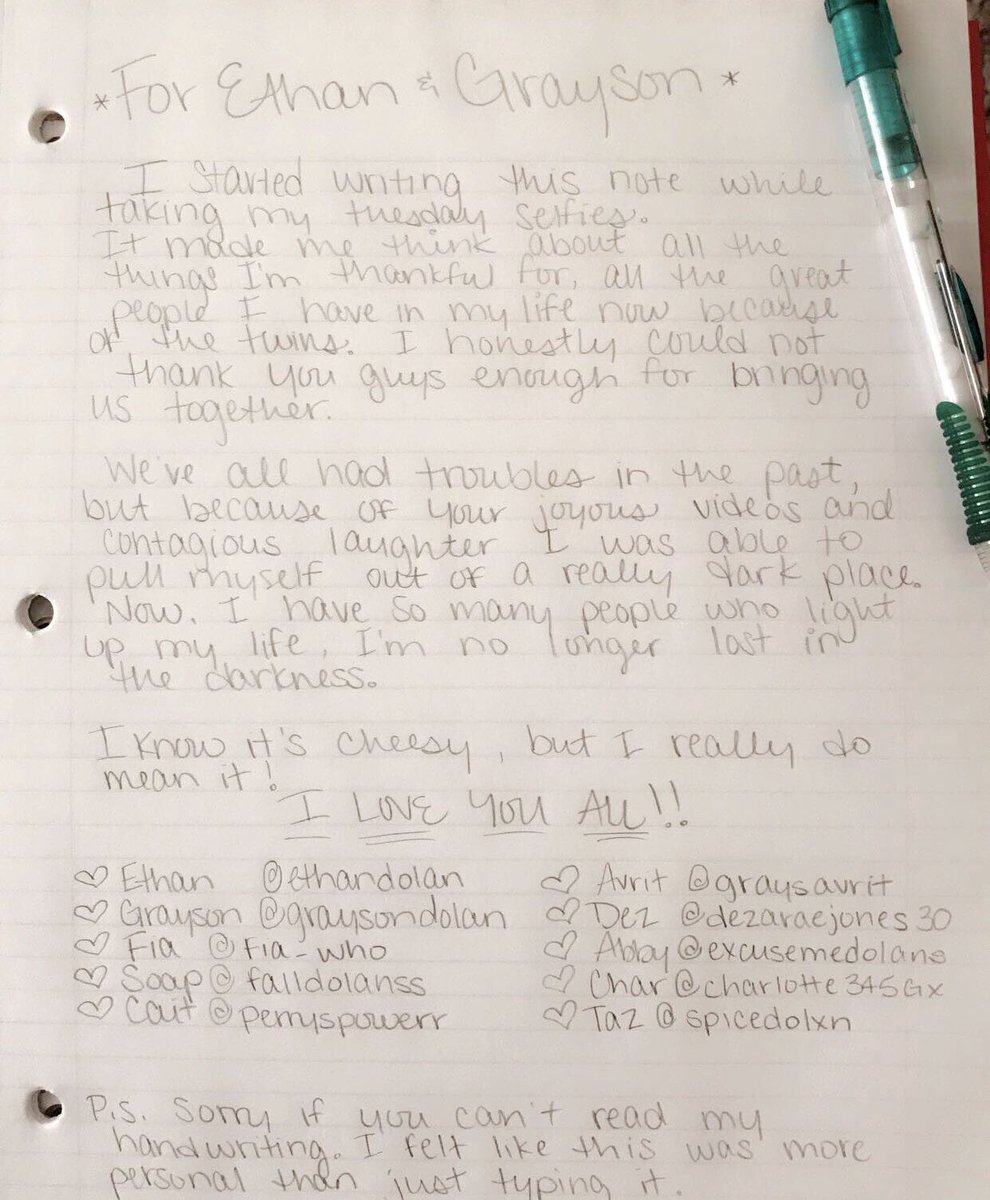 *For Ethan & Grayson*
I started writing this note while
taking my tuesday selfies.
It made me think about all the
things I'm thankful for, all the great
people I have in my life now because
of the twins. I honestly could not
thank you guys enough for bringing
us together.
We've all had troubles in the past,
but because of your joyous videos and
contagious laughter I was able to
pull myself out of a really dark place.
Now, I have so many people who light
up my life, I'm no longer lost in
the darkness.
I know it's cheesy, but I really do
mean it!
I LOVE YOU ALL!!
♡ Ethan @ethandolan
♡ Grayson @graysondolan
♡ Fia @Fia_who
♡ Soap @falldolanss
♡ Cait @perryspowerr
♡ Avrit @graysavrit
♡ Dez @dezaraejones30
♡ Abby @excusemedolans
♡ Char @charlotte345Gx
♡ Taz @spicedolxn
P.s. sorry if you can't read my
handwriting. I felt like this was more
personal than just typing it.